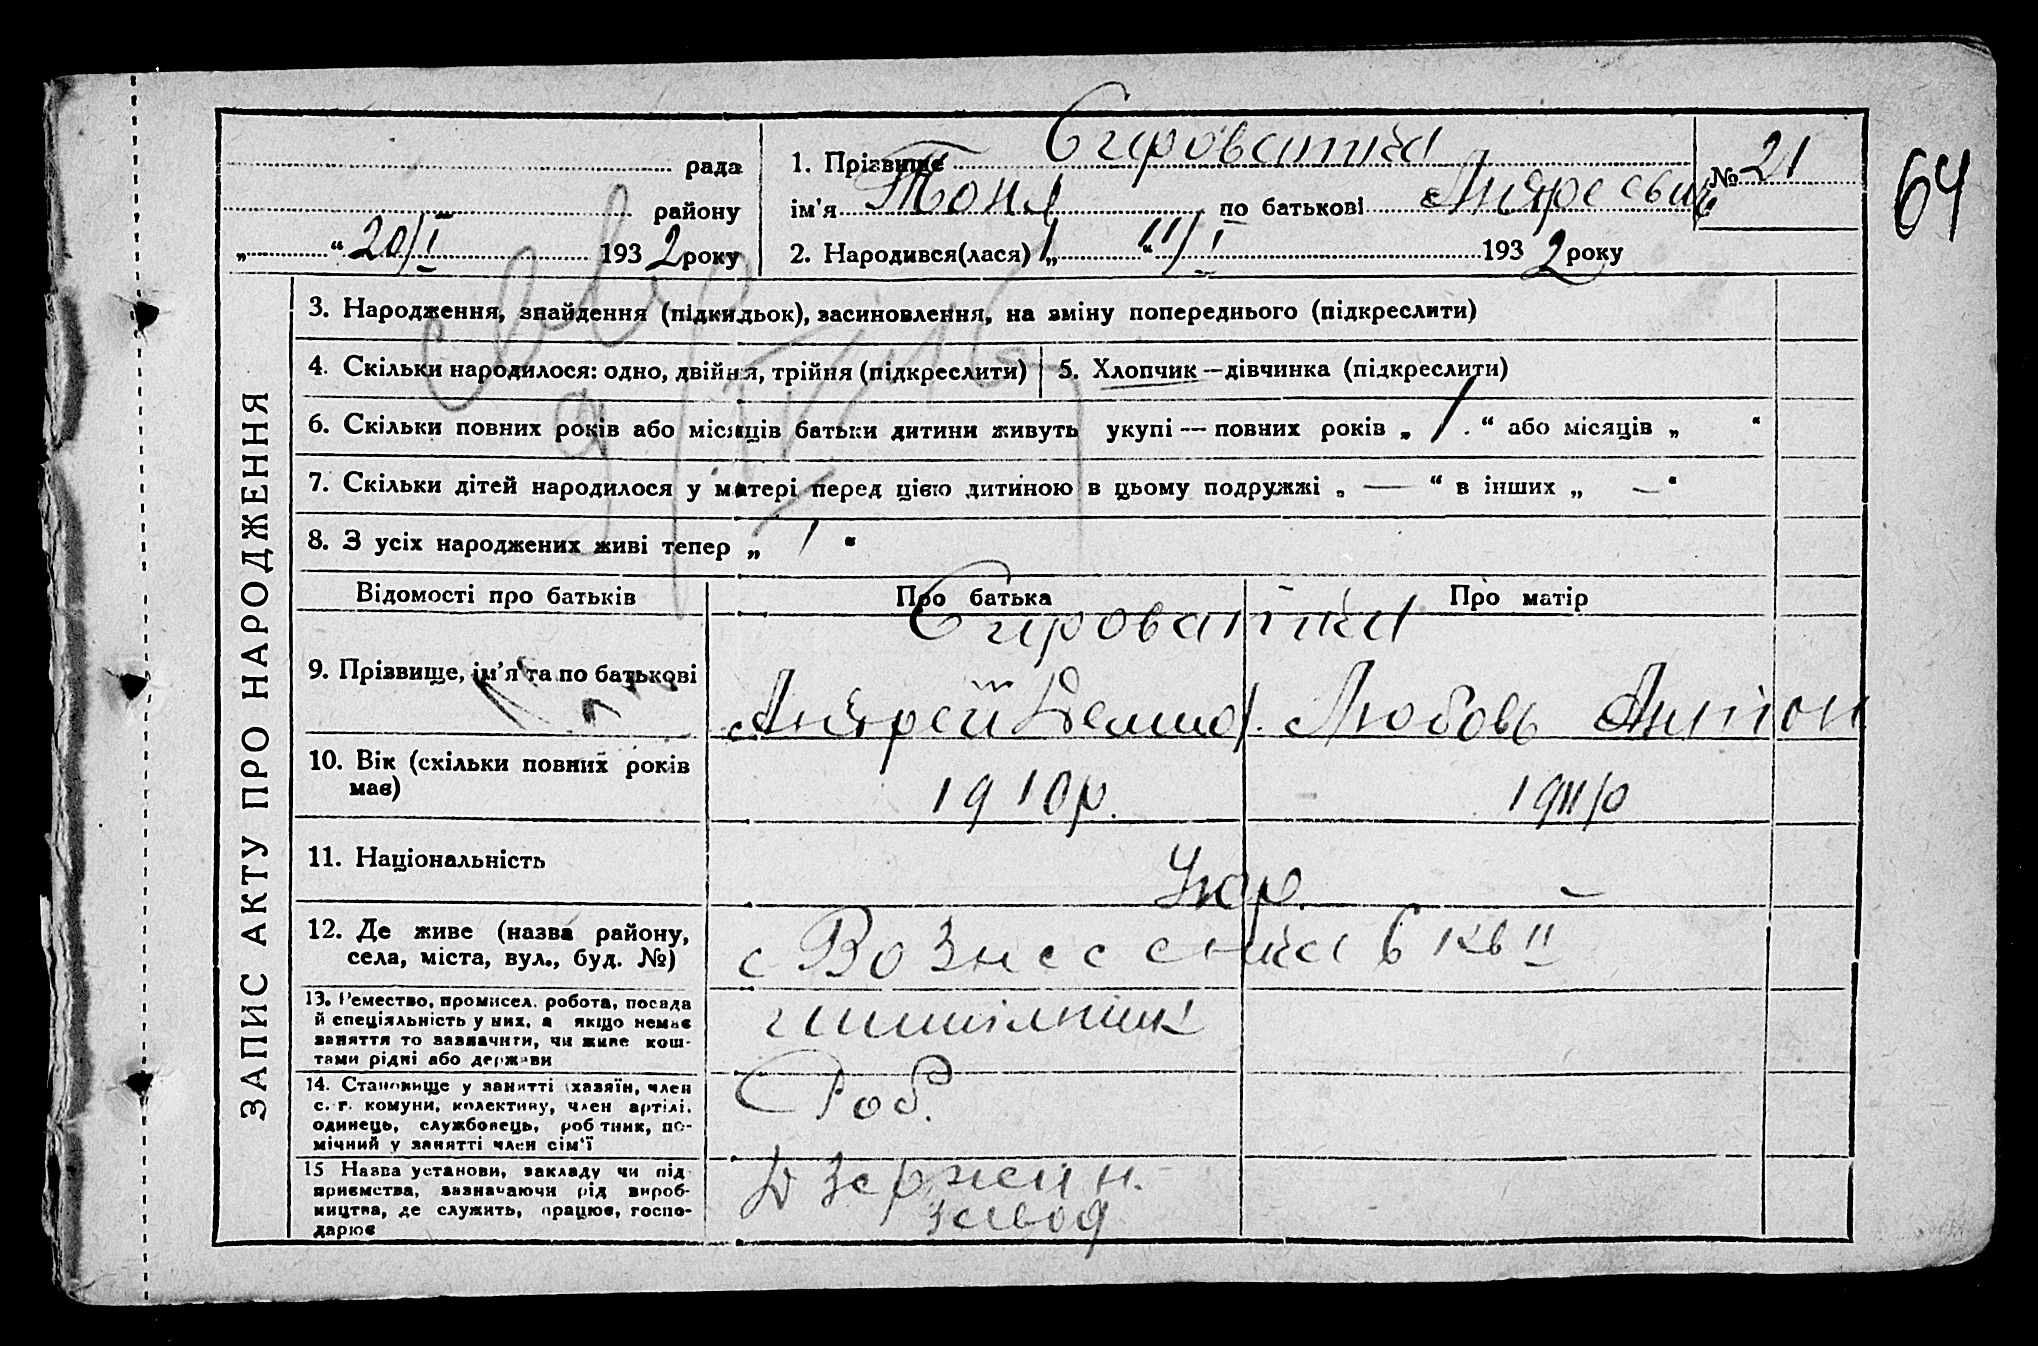 рада
району
„ “ 20/I 1932 року
1. Прізвище Сироватка
ім'я Тоня по батькові Андреевич
№ 21
64
2. Народився(лася) „ “ 11/I 1932 року
ЗАПИС АКТУ ПРО НАРОДЖЕННЯ
3. Народження, знайдення (підкидьок), засиновлення, на зміну попереднього (підкреслити)
4. Скільки народилося: одно, двійня, трійня (підкреслити)
5. Хлопчик — дівчинка (підкреслити)
6. Скільки повних років або місяців батьки дитини живуть укупі — повних років „ 1 . “ або місяців „ “
7. Скільки дітей народилося у матері перед цією дитиною в цьому подружжі „ — “ в інших „ — “
8. З усіх народжених живі тепер „ 1 “
Відомості про батьків
Про батька
Про матір
9. Прізвище, ім'я та по батькові
Сироватка
Андрей Демид. Любовь Антон
10. Вік (скільки повних років
має)
1910р.
1911р
11. Національність
Укр. —
12. Де живе (назва району,
села, міста, вул., буд. №)
с Вознесенка 6 кв 11
13. Ремество, промисел, робота, посада
й спеціяльність у них, а якщо немає
заняття то зазначити, чи живе кош-
тами рідні або держави
14. Становище у занятті (хазяїн, член
с.-г. комуни, колективу, член артілі,
одинець, службовець, робітник, по-
мічний у занятті член сім'ї
Роб.
15 Назва установи, закладу чи під
приємства, зазначаючи рід вироб-
ництва, де служить, працює, госпо-
дарює
Дзержин.
завод